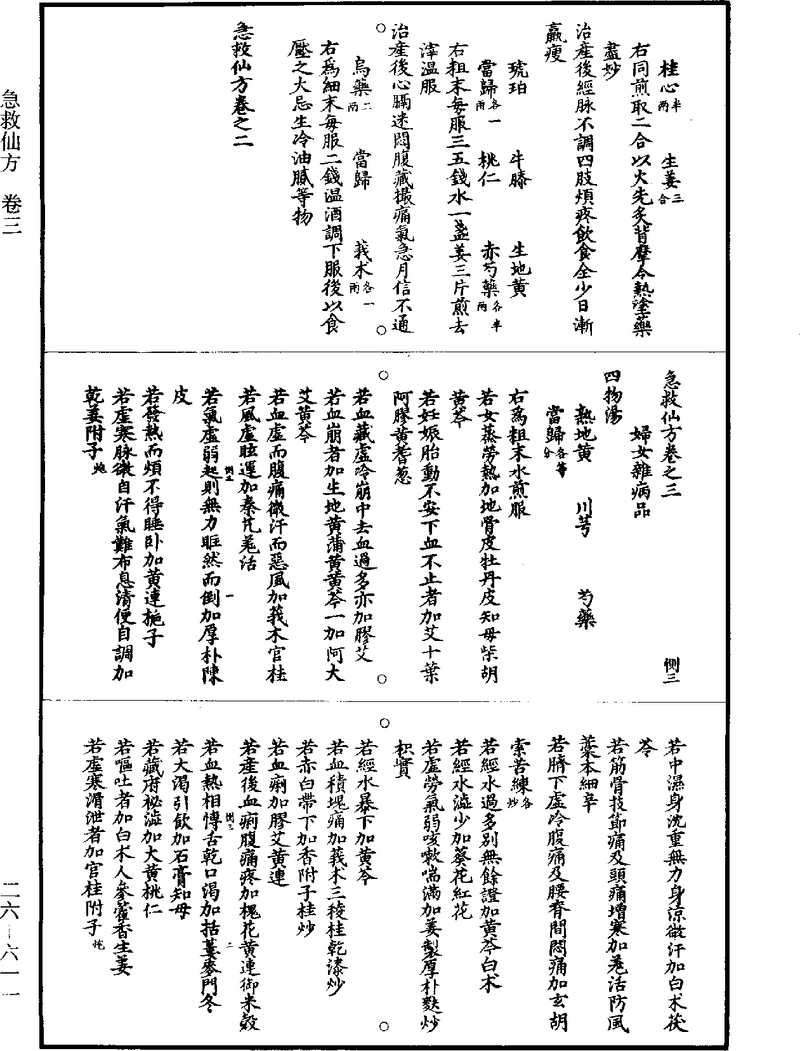 桂心半兩　生姜三合
右同煎取二合以火先炙背摩令熱塗藥
盡妙
治産後經脉不調四肢煩疼飲食全少日漸
羸瘦
琥珀　牛膝　生地黄
當歸各一兩　桃仁　赤芍藥各半兩
右粗末每服三五錢水一盞姜三片煎去
滓温服
治産後心膈迷悶腹藏撮痛氣急月信不通
烏藥二兩　當歸　莪朮各一兩
右爲細末每服二錢温酒調下服後以食
壓之大忌生冷油膩等物
急救仙方卷之二
急救仙方卷之三　惻三
婦女雜病品
四物湯
熟地黄　川芎　芍藥
當歸各等分
右爲粗末水煎服
若女蒸勞熱加地骨皮牡丹皮知母柴胡
黄芩
若妊娠胎動不安下血不止者加艾十葉
阿膠黄耆葱
若血藏虚冷崩中去血過多亦加膠艾
若血崩者加生地黄蒲黄黄芩一加阿大
艾黄芩
若血虚而腹痛微汗而惡風加莪朮官桂
若風虚眩運加秦艽羗活
若氣虚弱起則無力眶然而倒加厚朴陳
皮
惻三　一
若發熱而煩不得睡卧加黄連梔子
若虚寒脉微自汗氣難布息清便自調加
乾姜附子炮
若中濕身沈重無力身凉微汗加白术茯
苓
若筋骨技節痛及頭痛增寒加羗活防風
藁本細辛
若臍下虚冷腹痛及腰脊間悶痛加玄胡
索苦練各炒
若經水過多别無餘證加黄芩白术
若經水澁少加葵花紅花
若虚勞氣弱咳嗽喘滿加姜製厚朴麩炒
枳實
若經水暴下加黄芩
若血積塊痛加莪朮三稜桂乾漆炒
若赤白帶下加香附子桂炒
若血痢加膠艾黄連
若産後血痢腹痛疼加槐花黄連御米殻
惻三　二
若血熱相慱舌乾口渴加括蔞麥門冬
若大渴引飲加石膏知母
若藏府祕澁加大黄桃仁
若嘔吐者加白朮人參藿香生姜
若虚寒滑泄者加官桂附子炮
急救仙方　卷三
二六—六一一